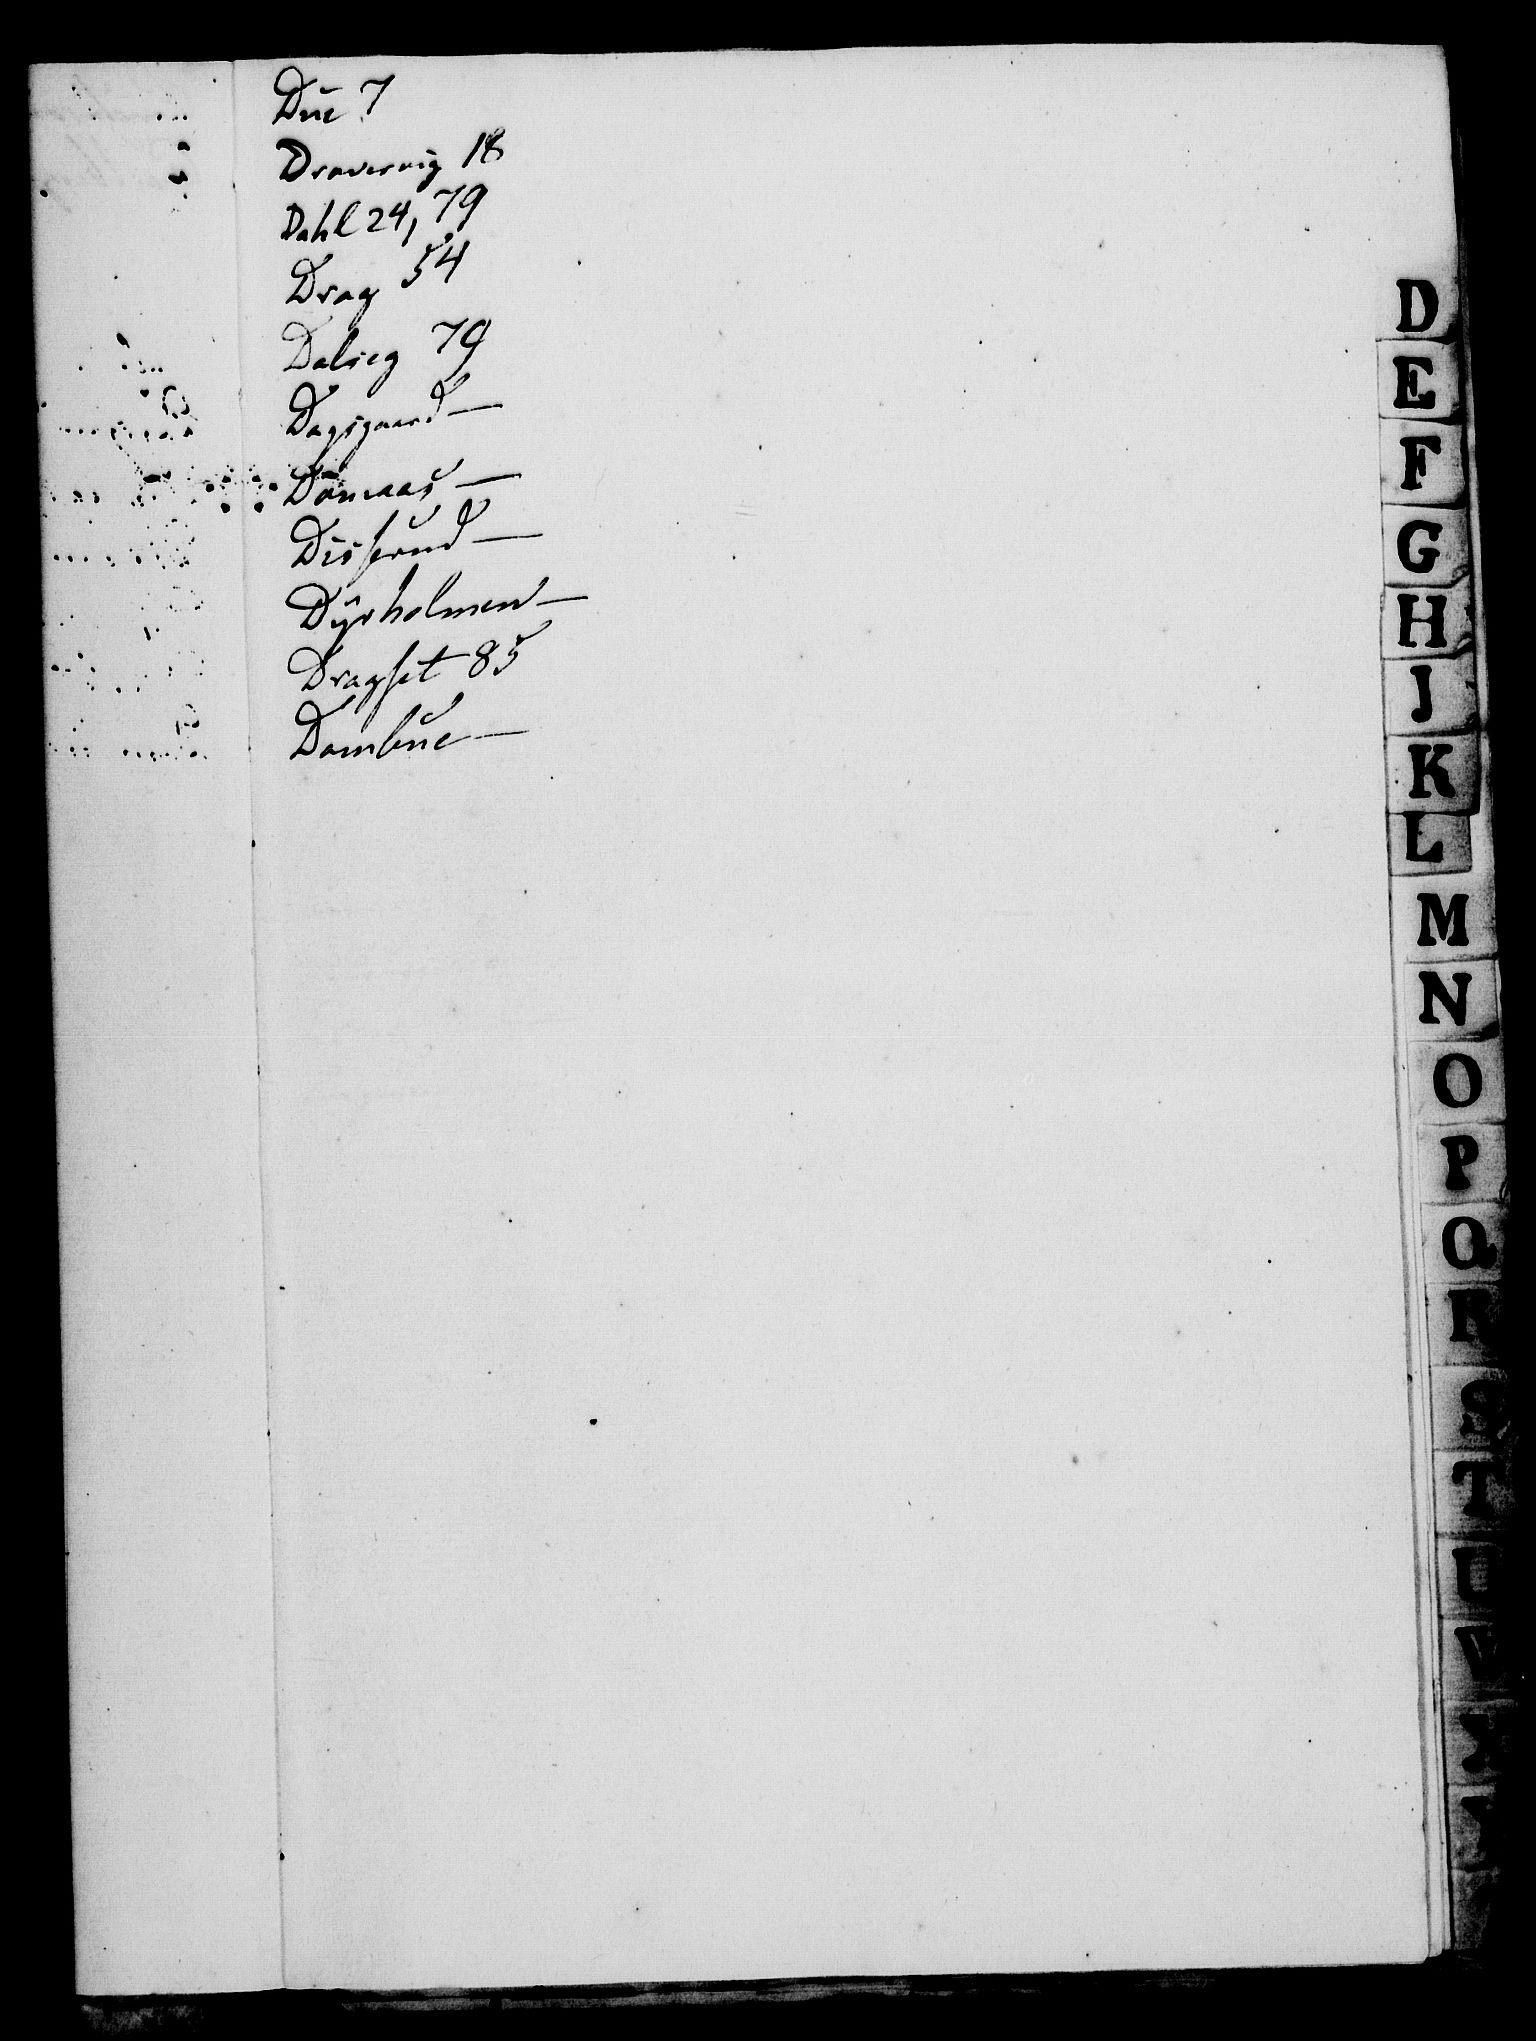 Due 7
Draversvig 18
Dahl 24, 79
Drag 54
Dalseg 79
Dagsgaard —
Domaas —
Disserud —
Dÿrholmen —
Dragset 85
Dambue —
D
E
F
G
H
J
K
L
M
N
O
P
Q
R
S
T
U
V